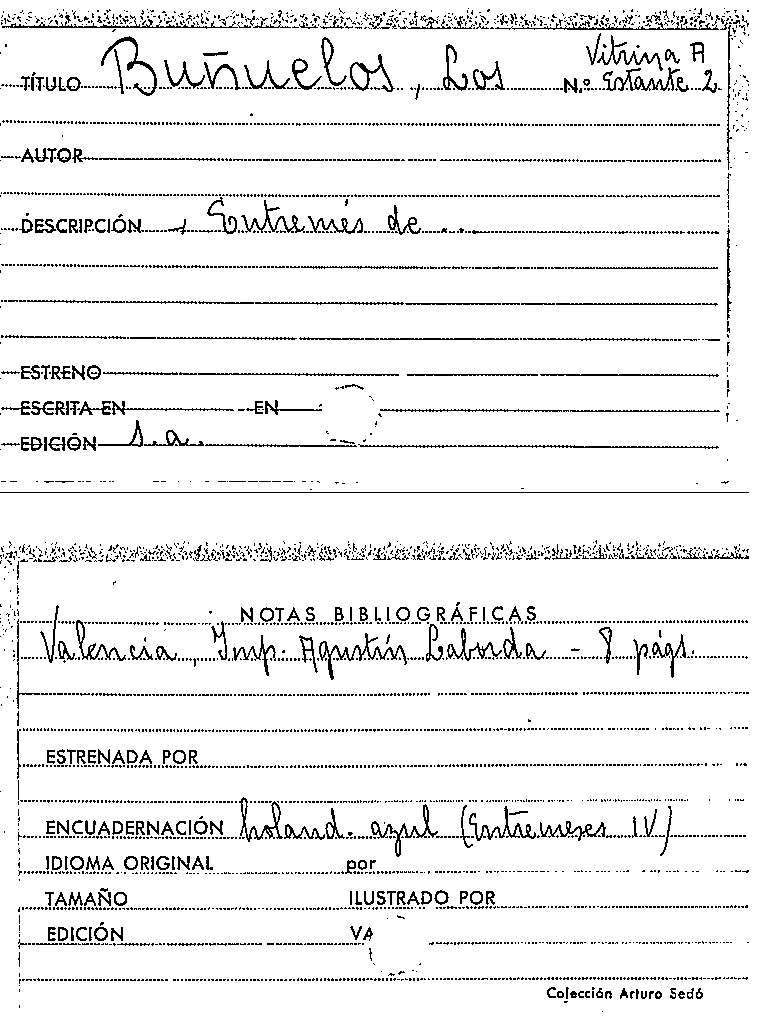 Vitrina A
TÍTULO Buñuelos, Los N.º Estante 2
AUTOR
DESCRIPCIÓN Entremés de ...
ESTRENO
ESCRITA EN EN
EDICIÓN s.a.
NOTAS BIBLIOGRÁFICAS
Valencia, Imp. Agustín Laborda - 8 págs.
ESTRENADA POR
ENCUADERNACIÓN holand. azul (Entremeses IV)
IDIOMA ORIGINAL por
TAMAÑO ILUSTRADO POR
EDICIÓN VA
Colección Arturo Sedó